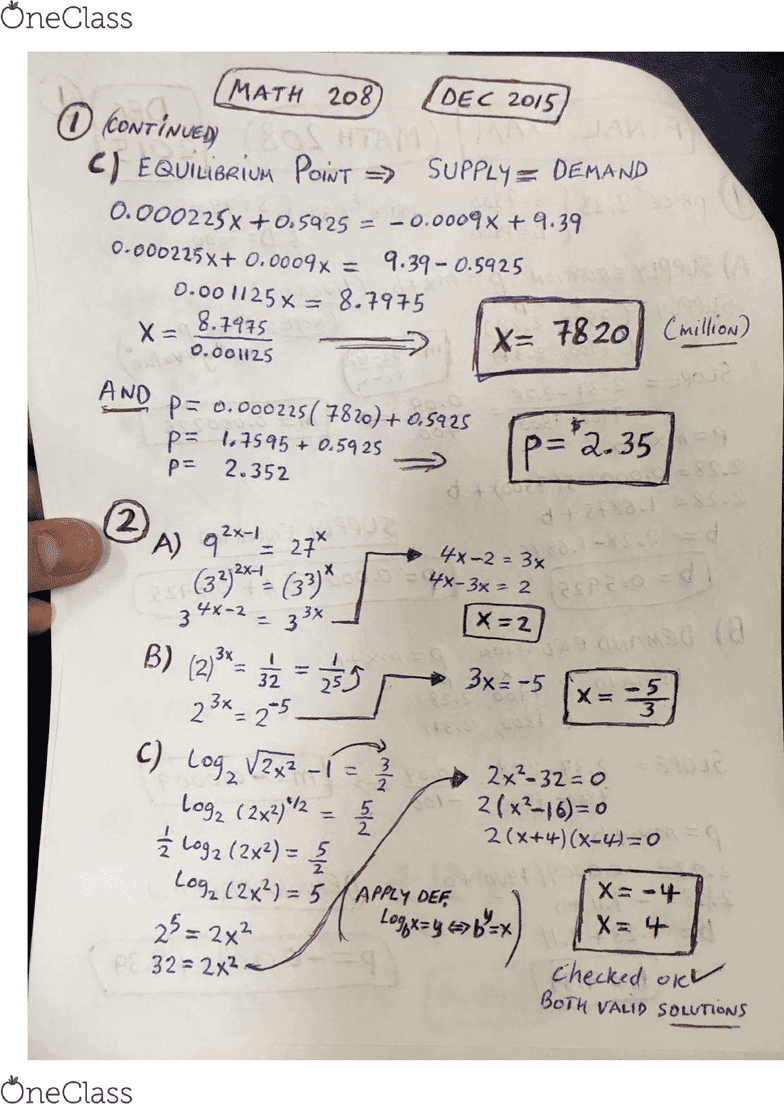 OneClass
MATH 208 DEC 2015
① (CONTINUED)
C) EQUILIBRIUM POINT ⇒ SUPPLY = DEMAND
0.000225x + 0.5925 = -0.0009x + 9.39
0.000225x + 0.0009x = 9.39 - 0.5925
0.001125x = 8.7975
x = 8.7975/0.001125 ⟹ x = 7820 (million)
AND p = 0.000225(7820) + 0.5925
p = 1.7595 + 0.5925
p = 2.352 ⟹ p = $2.35
② A) 9^(2x-1) = 27^x
(3^2)^(2x-1) = (3^3)^x
3^(4x-2) = 3^(3x)
4x - 2 = 3x
4x - 3x = 2
x = 2
B) (2)^(3x) = 1/32 = 1/2^5
2^(3x) = 2^(-5)
3x = -5 x = -5/3
C) Log₂ √(2x²) - 1 = 3/2
Log₂ (2x²)^(1/2) = 5/2
1/2 Log₂ (2x²) = 5/2
Log₂ (2x²) = 5
2^5 = 2x²
32 = 2x²
(APPLY DEF.
Log_b x = y ⇔ b^y = x)
2x² - 32 = 0
2(x² - 16) = 0
2(x+4)(x-4) = 0
x = -4
x = 4
Checked OK ✓
BOTH VALID SOLUTIONS
OneClass